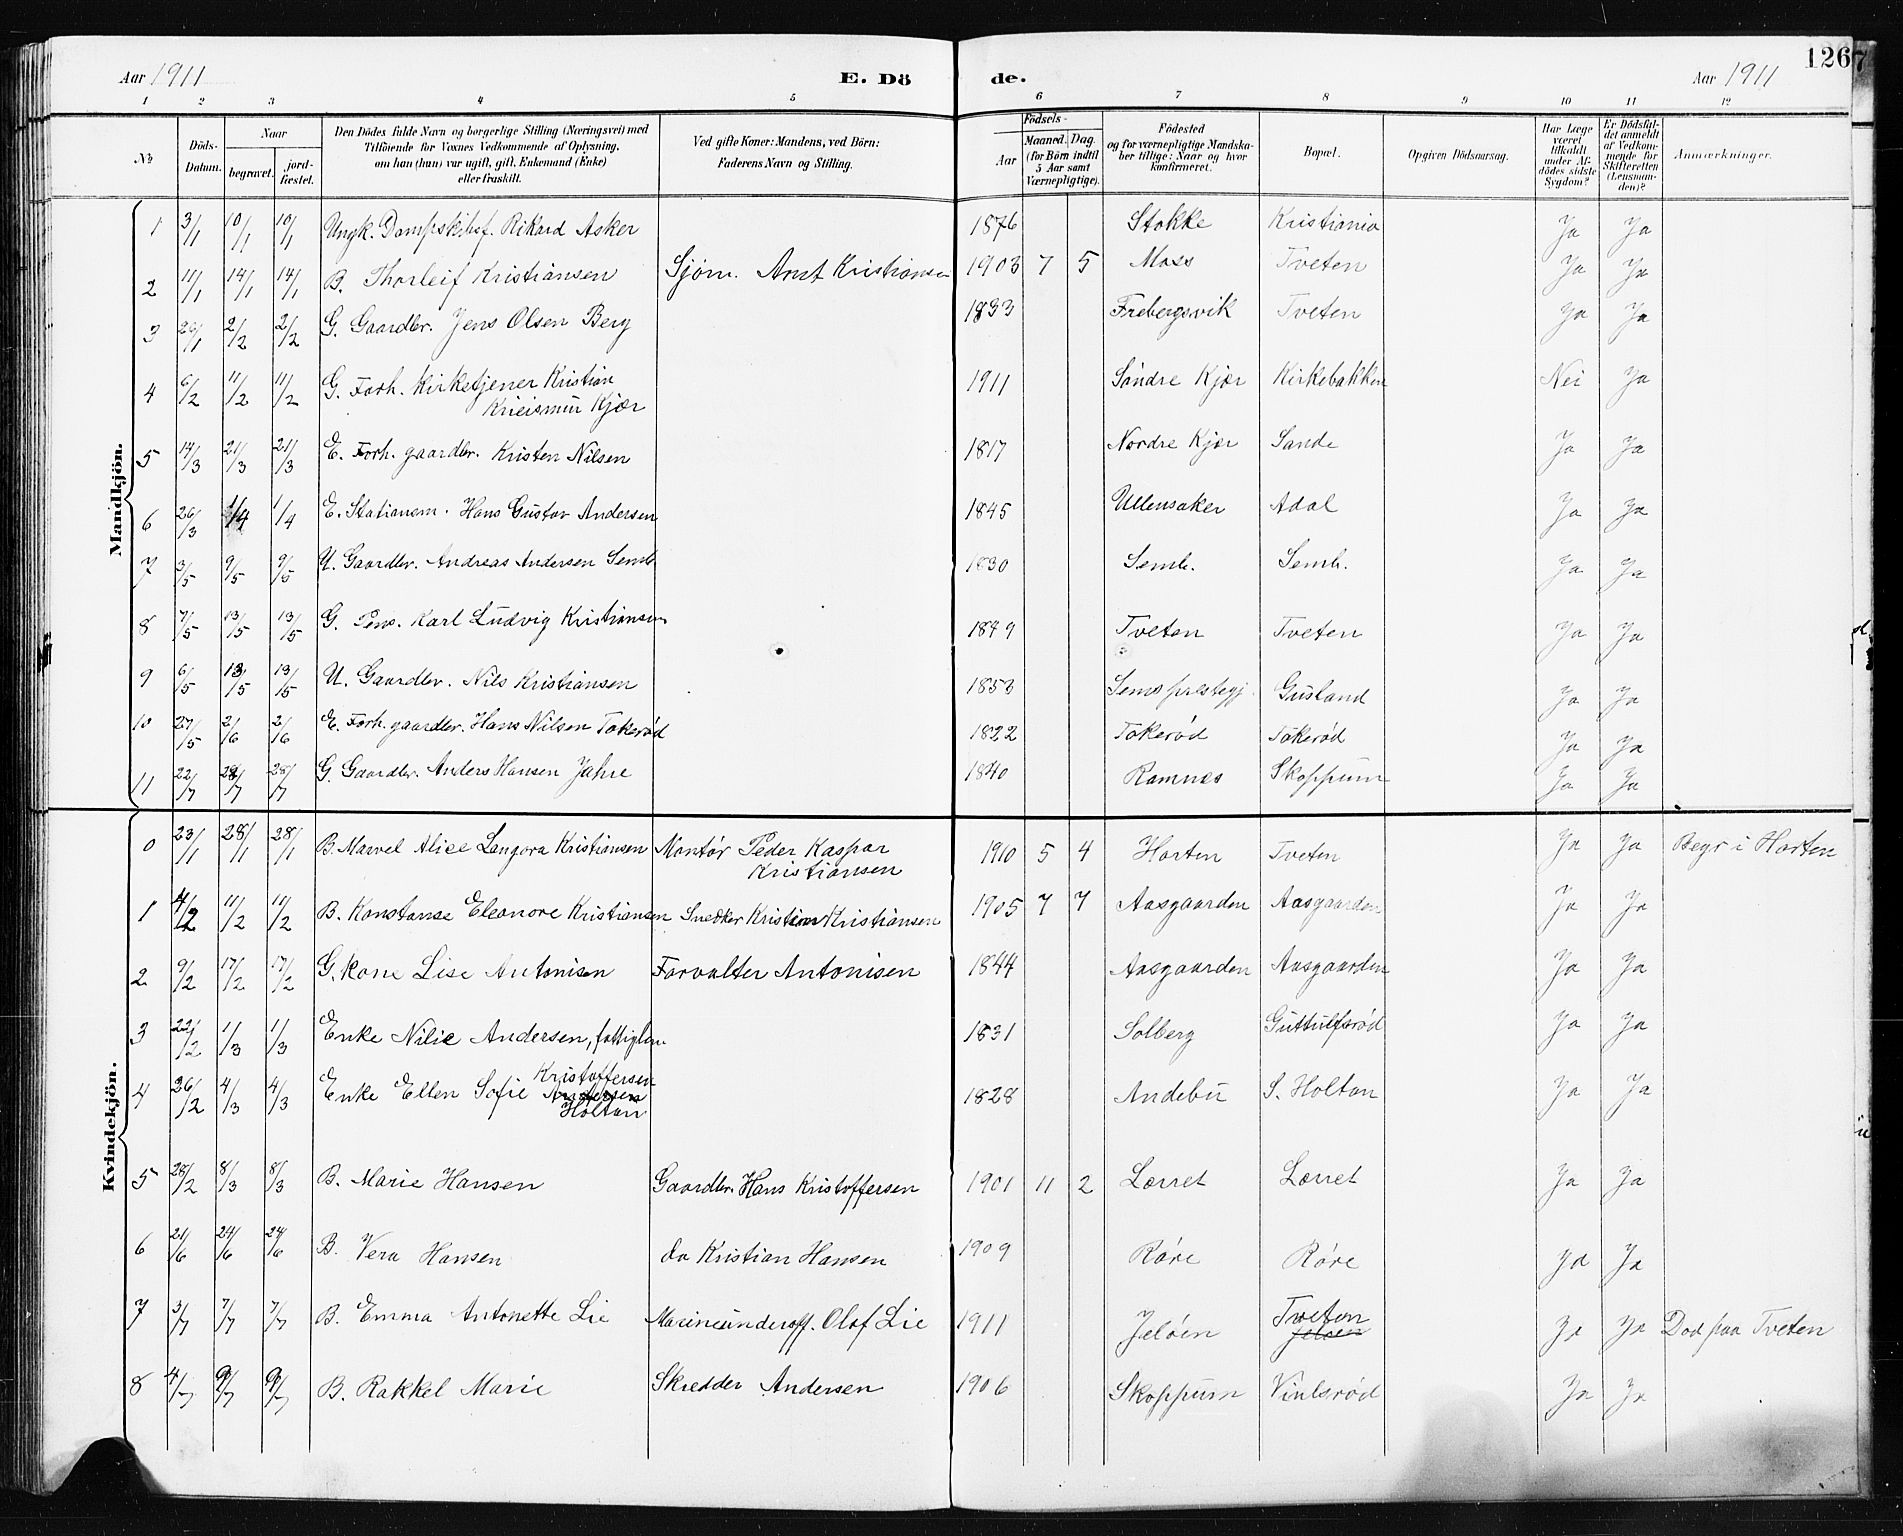 Aar 1911 E. Dö de. Aar 1911 126
1 2 3 4 5 6 7 8 9 10 11 12
№ Döds-Datum. Naar begravet. jordfæstet. Den Dödes fulde Navn og borgerlige Stilling (Næringsvei) med Tilföiende for Voxnes Vedkommende af Oplysning, om han (hun) var ugift, gift, Enkemand (Enke) eller fraskilt. Ved gifte Koner: Mandens, ved Börn: Faderens Navn og Stilling. Födsels- Aar Maaned. Dag. (for Börn indtil 5 Aar samt Værnepligtige). Födested og for værnepligtige Mandskaber tillige: Naar og hvor konfirmeret. Bopæl. Opgiven Dödsaarsag. Har Læge været tilkaldt under Afdödes sidste Sygdom? Er Dödsfaldet anmeldt af Vedkommende for Skifteretten (Lensmanden)? Anmærkninger.
Mandkjön.
1 3/1 10/1 10/1 Ungk. Dampskibsf. Rikard Asker 1876 Stokke Kristiania Ja Ja
2 11/1 14/1 14/1 B. Thorleif Kristiansen Sjøm. Arnt Kristiansen 1903 7 5 Moss Tveten Ja Ja
3 /1 2/2 2/2 G. Gaardbr. Jens Olsen Berg 1833 Frebergsvik Tveten Ja Ja
4 6/2 11/2 11/2 G. Forh. Kirketjener Kristian Kjær 1911 Søndre Kjær Kirkebakken Nei Ja
5 14/3 21/3 21/3 E. Forh. gaardbr. Kristen Nilsen 1817 Nordre Kjær Sande Ja Ja
6 26/3 1/4 1/4 E. Stationem. Hans Gustav Andersen 1845 Ullensaker Adal Ja Ja
7 3/5 9/5 9/5 U. Gaardbr. Andreas Andersen Semb 1830 Semb. Semb. Ja Ja
8 7/5 13/5 13/5 G. Pens. Karl Ludvig Kristiansen 1849 Tveten Tveten Ja Ja
9 6/5 13/5 13/5 U. Gaardbr. Nils Kristiansen 1853 Sems prestegj. Gusland Ja Ja
10 27/5 2/6 2/6 E. Forh. gaardbr. Hans Nilsen Takerød 1822 Takerød Takerød Ja Ja
11 22/7 28/7 28/7 G. Gaardbr. Anders Hansen Jahre 1840 Ramnes Skoppum Ja Ja
Kvindekjön.
0 23/1 28/1 28/1 B. Marvel Alice Langora Kristiansen Montør Peder Kaspar Kristiansen 1910 5 4 Horten Tveten Ja Ja Begr i Horten
1 4/2 11/2 11/2 B. Konstanse Eleonore Kristiansen Snedker Kristian Kristiansen 1905 7 7 Aasgaarden Aasgaarden Ja Ja
2 9/2 17/2 17/2 G. kone Lise Antonisen Forvalter Antonisen 1844 Aasgaarden Aasgaarden Ja Ja
3 22/2 1/3 1/3 Enke Nilie Andersen, fattiglem 1831 Solberg Guttulfsrød Ja Ja
4 26/2 4/3 4/3 Enke Ellen Sofie Kristoffersen Andersen Holtan 1828 Andebu S. Holtan Ja Ja
5 28/2 8/3 8/3 B. Marie Hansen Gaardbr. Hans Kristoffersen 1901 11 2 Lørret Lørret Ja Ja
6 21/6 24/6 24/6 B. Vera Hansen do Kristian Hansen 1909 Røre Røre Ja Ja
7 3/7 7/7 7/7 B. Emma Antonette Lie Marineunderoff. Olaf Lie 1911 Jeløen Tveten Jeløen Ja Ja Død paa Tveten
8 4/7 9/7 9/7 B. Rakkel Marie Skredder Andersen 1906 Skoppum Viulsrød Ja Ja